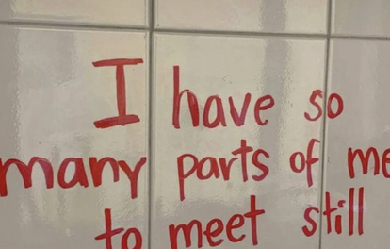 I have so
many parts of me
to meet still